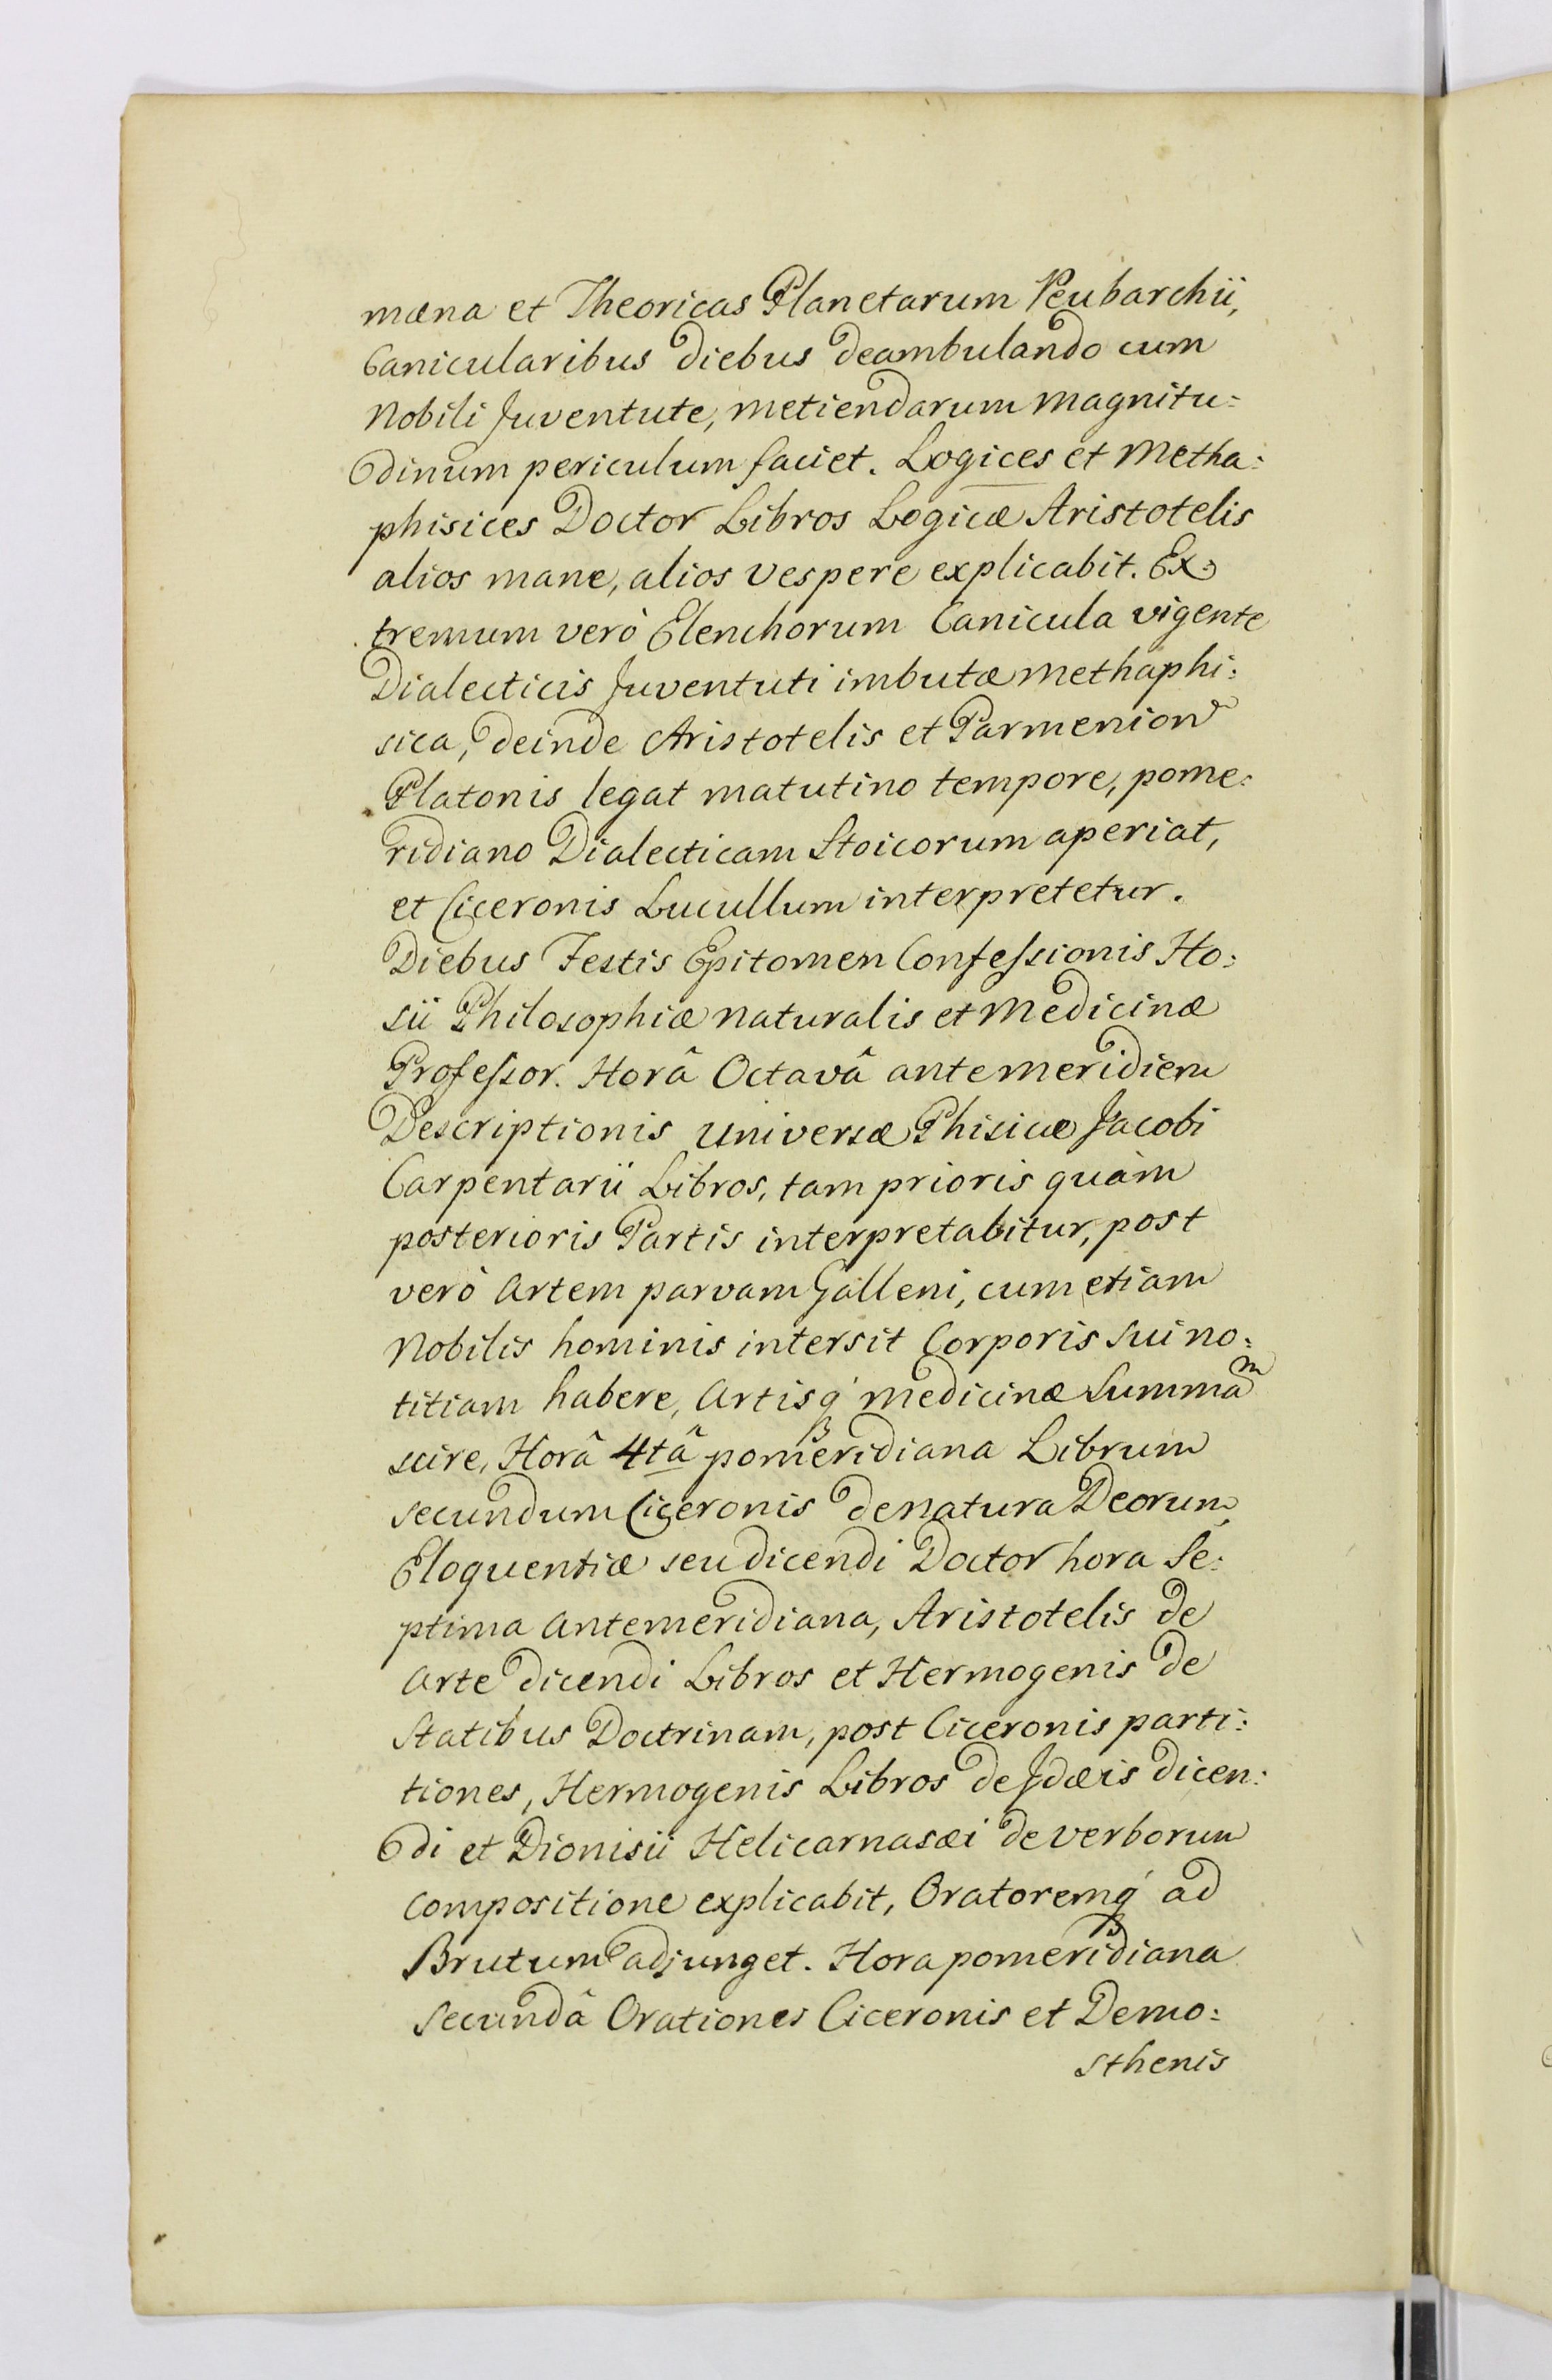 mæna et Theoricas Planetarum Peubarchii,
Canicularibus diebus deambulando cum
Nobili Juventute, metiendarum magnitu:
dinum periculum faciet. Logices et Metha:
phisices Doctor Libros Logicæ Aristotelis
alios mane, alios vespere explicabit. Ex:
tremum verò Elenchorum Canicula vigente
Dialecticis Juventuti imbutæ methaphi:
sica, deinde Aristotelis et Parmenion
Platonis legat matutino tempore, pome:
ridiano Dialecticam Stoicorum aperiat,
et Ciceronis Lucullum interpretetur.
Diebus Festis Epitomen Confeſsionis Ho:
sii Philosophiæ naturalis et Medicinæ
Profeſsor. Horâ Octavâ antemeridiem
Descriptionis universæ Phisicæ Jacobi
Carpentarii Libros, tam prioris quàm
posterioris Partis interpretabitur, post
verò Artem parvam Galleni, cum etiam
Nobilis hominis intersit Corporis sui no:
titiam habere, Artisq́ medicinæ Summam
scire, Horâ 4tâ pomeridiana Librum
secundum Ciceronis de natura Deorum,
Eloquentiæ seu dicendi Doctor hora Se:
ptima antemeridiana, Aristotelis de
Arte dicendi Libros et Hermogenis de
Statibus Doctrinam, post Ciceronis parti:
tiones, Hermogenis Libros de Jdæis dicen:
di et Dionisii Helicarnasæi de verborum
compositione explicabit, Oratoremq́ ad
Brutum adjunget. Hora pomeridiana
Secundâ Orationes Ciceronis et Demo:
sthenis